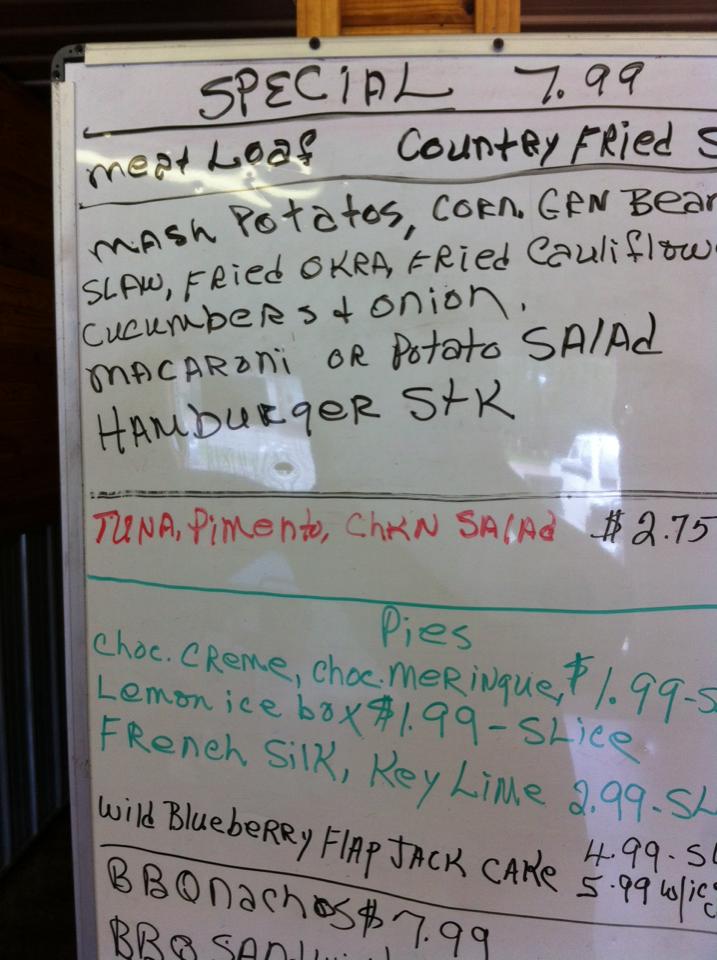 SPECIAL 7.99
Meat Loaf Country Fried S
Mash Potatos, Corn. GRN Bean
Slaw, Fried Okra, Fried Cauliflow
Cucumbers & Onion.
Macaroni or Potato Salad
Hamburger Stk
Tuna, Pimento, Chkn Salad $2.75
Pies
Choc. Creme, Choc. Merinque, $1.99-S
Lemon ice box $1.99-Slice
French Silk, Key Lime 2.99-Sl
Wild Blueberry Flap Jack Cake 4.99-Sl
5.99 w/ic
BBQ nachos $7.99
BBQ Sandwi